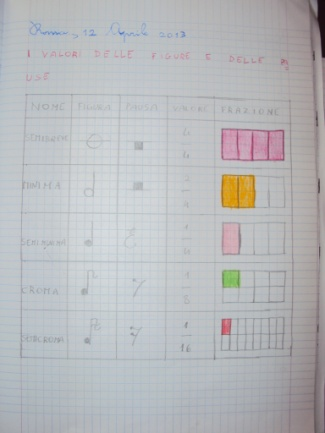 Roma, 12 Aprile 2013
I VALORI DELLE FIGURE E DELLE PA
USE
NOME FIGURA PAUSA VALORI FRAZIONE
SEMIBREVE 4/4
MINIMA 2/4
SEMIMINIMA 1/4
CROMA 1/8
SEMICROMA 1/16